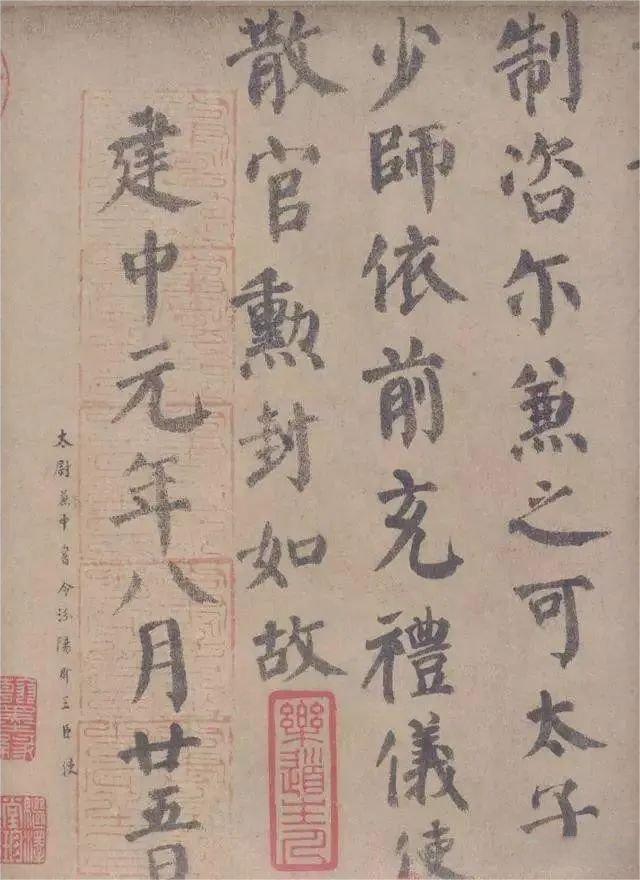 制咨尓兼之可太子
少師依前充禮儀使
散官勲封如故
樂道主人
建中元年八月廿五日
太尉兼中書令汾陽郡王臣使